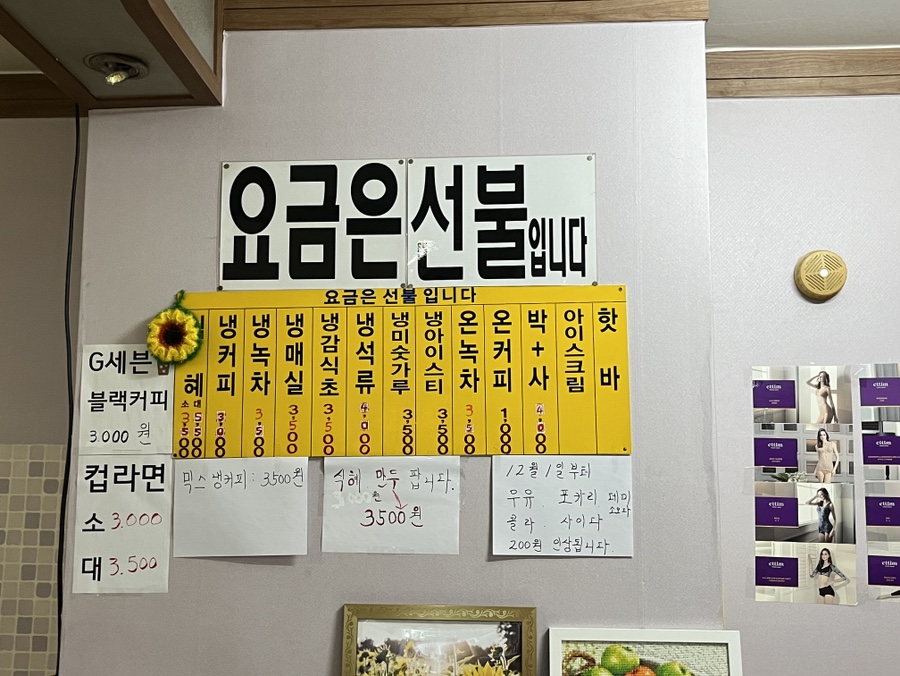 요금은선불입니다
요금은 선불 입니다
혜
소 대
3.500 5.500
냉커피
3.000
냉녹차
3.500
냉매실
3.500
냉감식초
3.500
냉석류
4.000
냉미숫가루
3.500
냉아이스티
3.500
온녹차
3.500
온커피
1.000
박+사
4.000
아이스크림
핫바
G세븐
블랙커피
3.000 원
컵라면
소 3.000
대 3.500
믹스 냉커피: 3500원
식혜 만두 팝니다.
3500원
12월 1일부터
우유 포카리 데미소다
콜라 사이다
200원 인상됩니다.
ettim
ettim
ettim
ettim
ettim
ettim
ettim
ettim